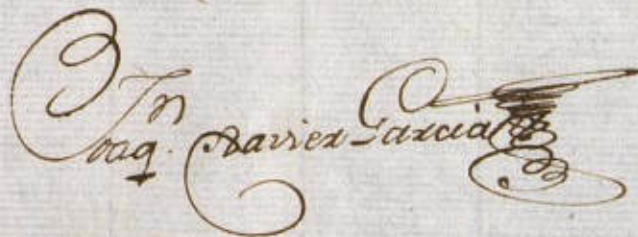 Joaqⁿ. Xavier Garcia